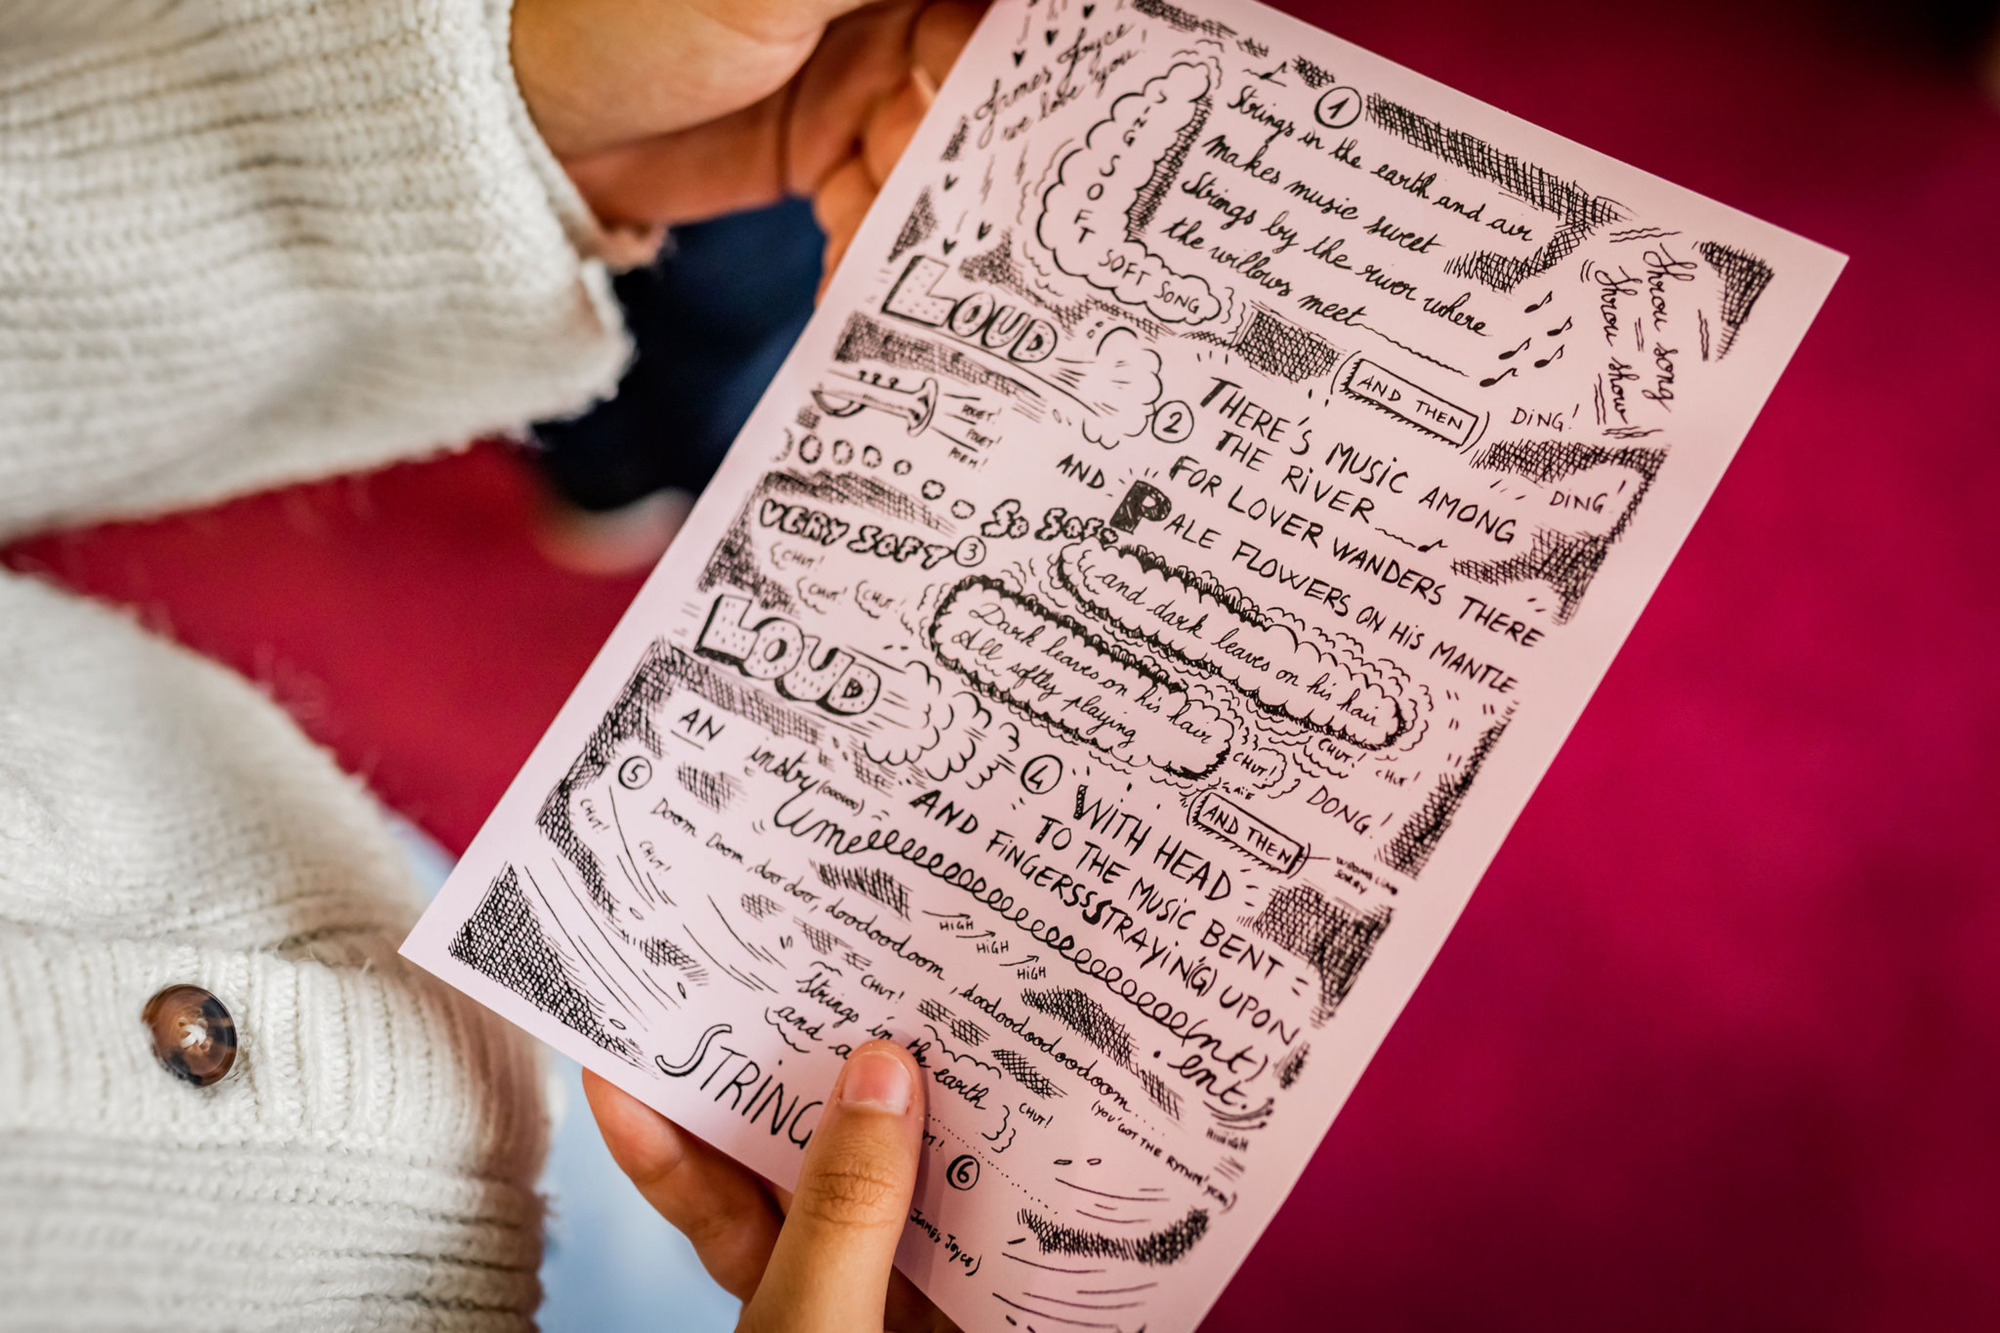 James Joyce
we love you!
SING SOFT
SOFT SONG
1
Strings in the earth and air
makes music sweet
Strings by the river where
the willows meet
Throu song
throu show
LOUD
AND THEN
DiNG!
DiNG!
POUET!
POUET!
POEM!
2
THERE'S MUSIC AMONG
THE RIVER
FOR LOVER WANDERS THERE
AND
PALE FLOWERS ON HiS MANTLE
SO SOFT
VERY SOFT
3
CHUT!
CHUT!
CHUT!
and dark leaves on his hair
Dark leaves on his hair
All softly playing
CHUT!
CHUT!
CHUT!
DONG!
LOUD
4
AND THEN
SORRY
WITH HEAD
TO THE MUSIC BENT
AND FiNGERSSSTRAYiN(G) UPON
AN
instry
umeeeeeeeeeeeeeeeeee(nt)
ent.
5
CHUT!
CHUT!
Doom Doom, doo doo, doodoodoom, doodoodoodoodoom...
HiGH
HiGH
HiGH
HiiiiGH
(YOU'GOT THE RYTHM'YEAH)
CHUT!
Strings in the earth
and a
CHUT!
STRING
6
James Joyce)